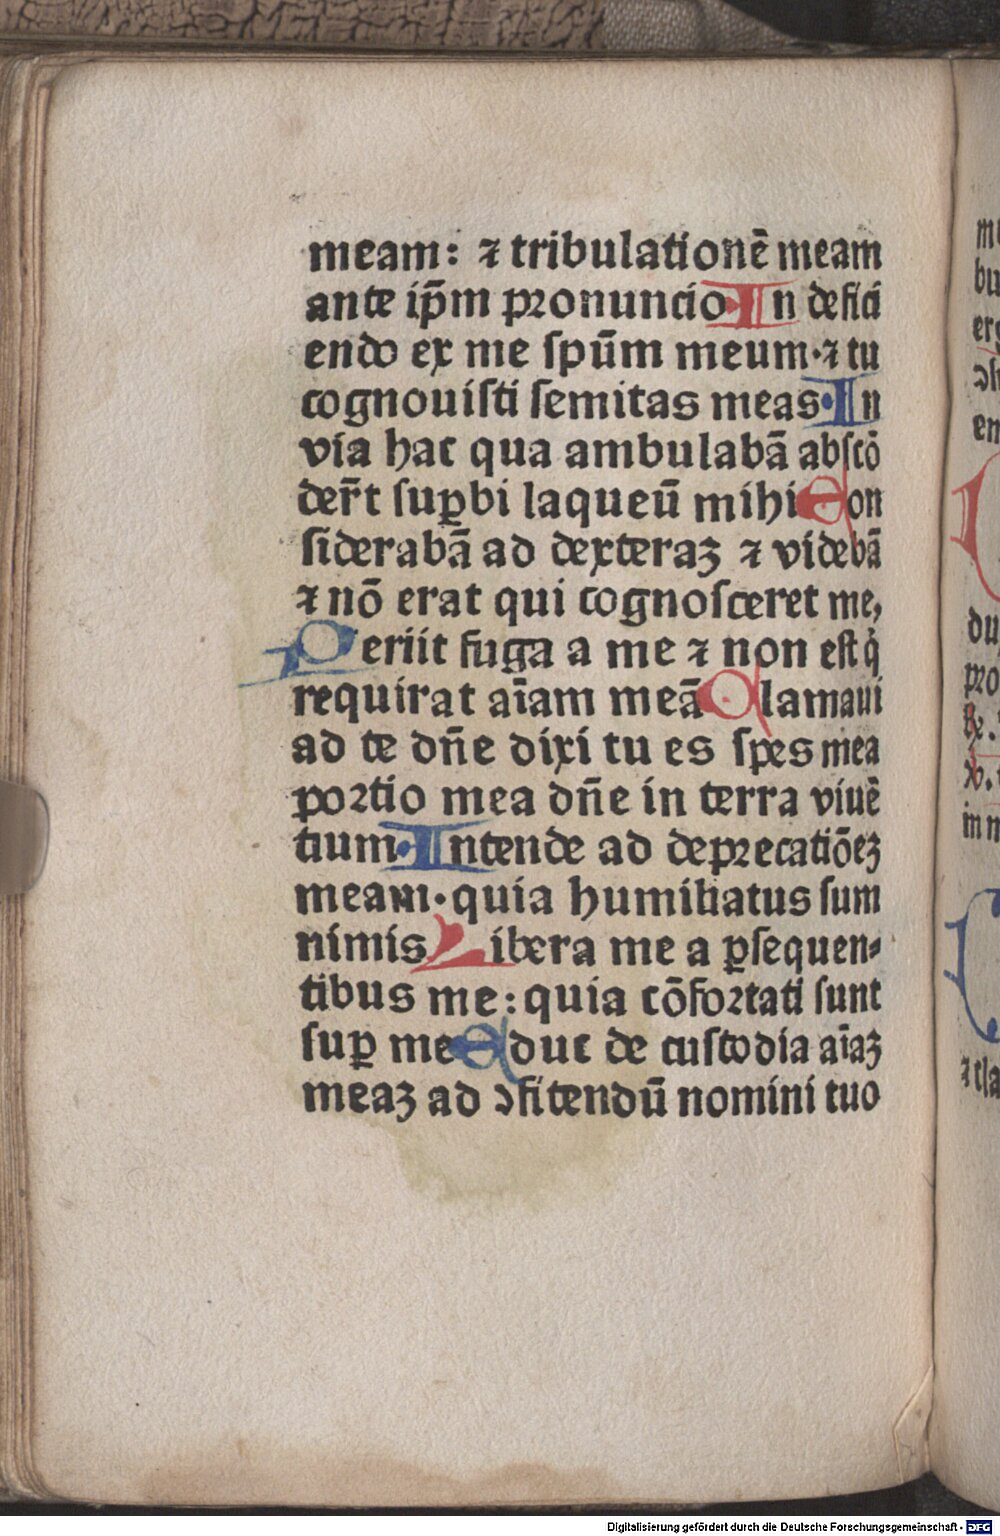 meam: ⁊ tribulationē meam
ante ip̄m pronuncio In defici
endo ex me ſpūm meum·⁊ tu
cognouiſti ſemitas meas·In
via hac qua ambulabā abſcō
der̄t ſuꝑbi laqueū mihi Con
ſiderabā ad dexteraꝫ ⁊ videbā
⁊ nō erat qui cognoſceret me,
Periit fuga a me ⁊ non eſt qͥ
requirat aīam meā Clamaui
ad te dn̄e dixi tu es ſpes mea
portio mea dn̄e in terra viuē
tium·Intende ad deprecatiōeꝫ
meam·quia humiliatus ſum
nimis Libera me a ꝑſequen⸗
tibus me: quia cōfortati ſunt
ſuꝑ me Educ de cuſtodia aīaꝫ
meaꝫ ad ↄfitendū nomini tuo
Digitalisierung gefördert durch die Deutsche Forschungsgemeinschaft - DFG